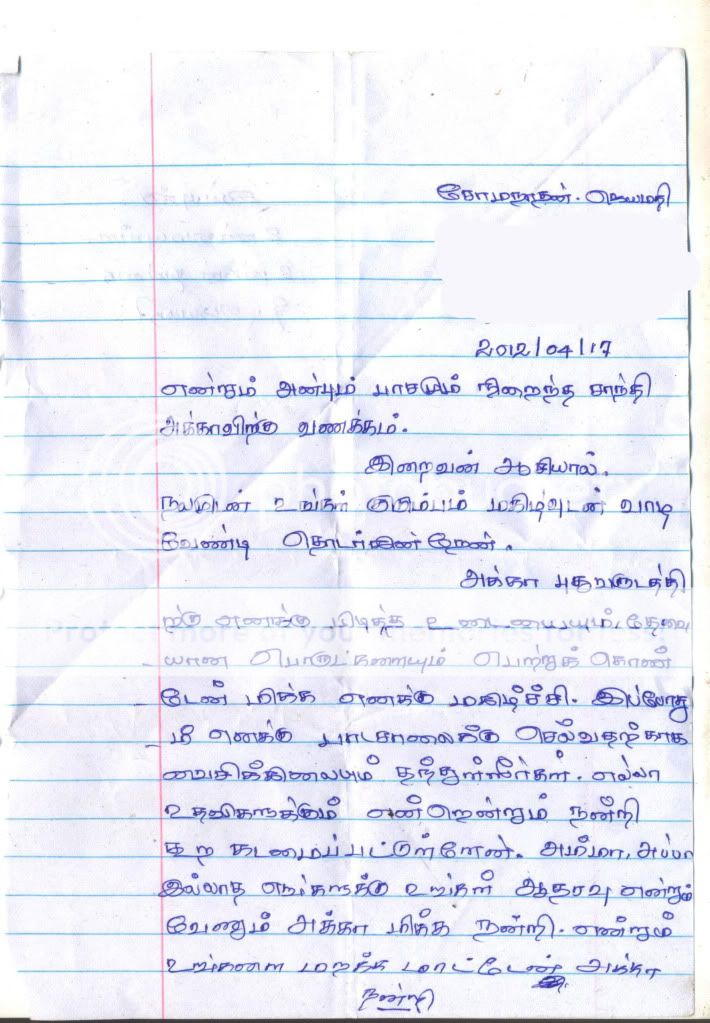 கோமநாதன். ஜெயமதி
2012/04/17
என்றும் அன்பும் பாசமும் நிறைந்த சாந்தி
அக்காவிற்கு வணக்கம்.
இறைவன் ஆசியால்.
நலமுடன் உங்கள் குடும்பம் மகிழ்வுடன் வாழ
வேண்டி தொடர்கின்றேன்.
அக்கா புதுவருடத்தி
ற்கு எனக்கு பிடித்த உடையையும், தேவை
யான பொருட்களையும் பெற்றுக் கொண்
டேன் மிக்க எனக்கு மகிழ்ச்சி. இப்போது
ம் எனக்கு பாடசாலைக்கு செல்வதற்காக
சைக்கிலையும் தந்துள்ளீர்கள். எல்லா
உதவிகளுக்கும் என்றென்றும் நன்றி
கூற கடமைப்பட்டுள்ளேன். அம்மா, அப்பா
இல்லாத எங்களுக்கு உங்கள் ஆதரவு என்றும்
வேணும் அக்கா மிக்க நன்றி. என்றும்
உங்களை மறக்க மாட்டேன் அக்கா
நன்றி